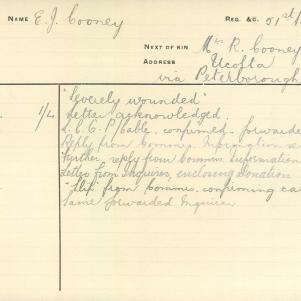 NAME E. J. Cooney REG. &C. 51st
NEXT OF KIN Mrs R. Cooney
ADDRESS Ucolta
via Peterborough
"Severely wounded"
1/4 Letter acknowledged.
Cable, confirmed - forwarded
Reply from Commrs. Information
Further, reply from Commrs. Information
Letter from Inquirer, enclosing Donation
"Slip" from Commrs. confirming ca
Same forwarded Inquirer